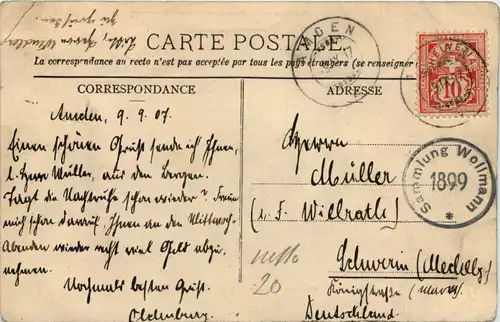 CARTE POSTALE
La correspondance au recto n'est pas acceptée par tous les pays étrangers (se renseigner
CORRESPONDANCE
Amden, 9. 9. 07.
Einen schönen Gruss sende ich Ihnen,
l. Herr Müller, aus den Bergen.
Tagt die Nachtruhe schon wieder? Freue
mich schon darauf Ihnen an den Mittwoch-
Abenden wieder recht viel Geld abzu-
nehmen.
Nochmals besten Gruss.
Oldenburg.
ADRESSE
Herrn
Müller
(i. F. Willrath)
Schwerin (Mecklbg.)
Königstraße
Deutschland.
20
AMDEN
10
Sammlung Wollmann
1899
*